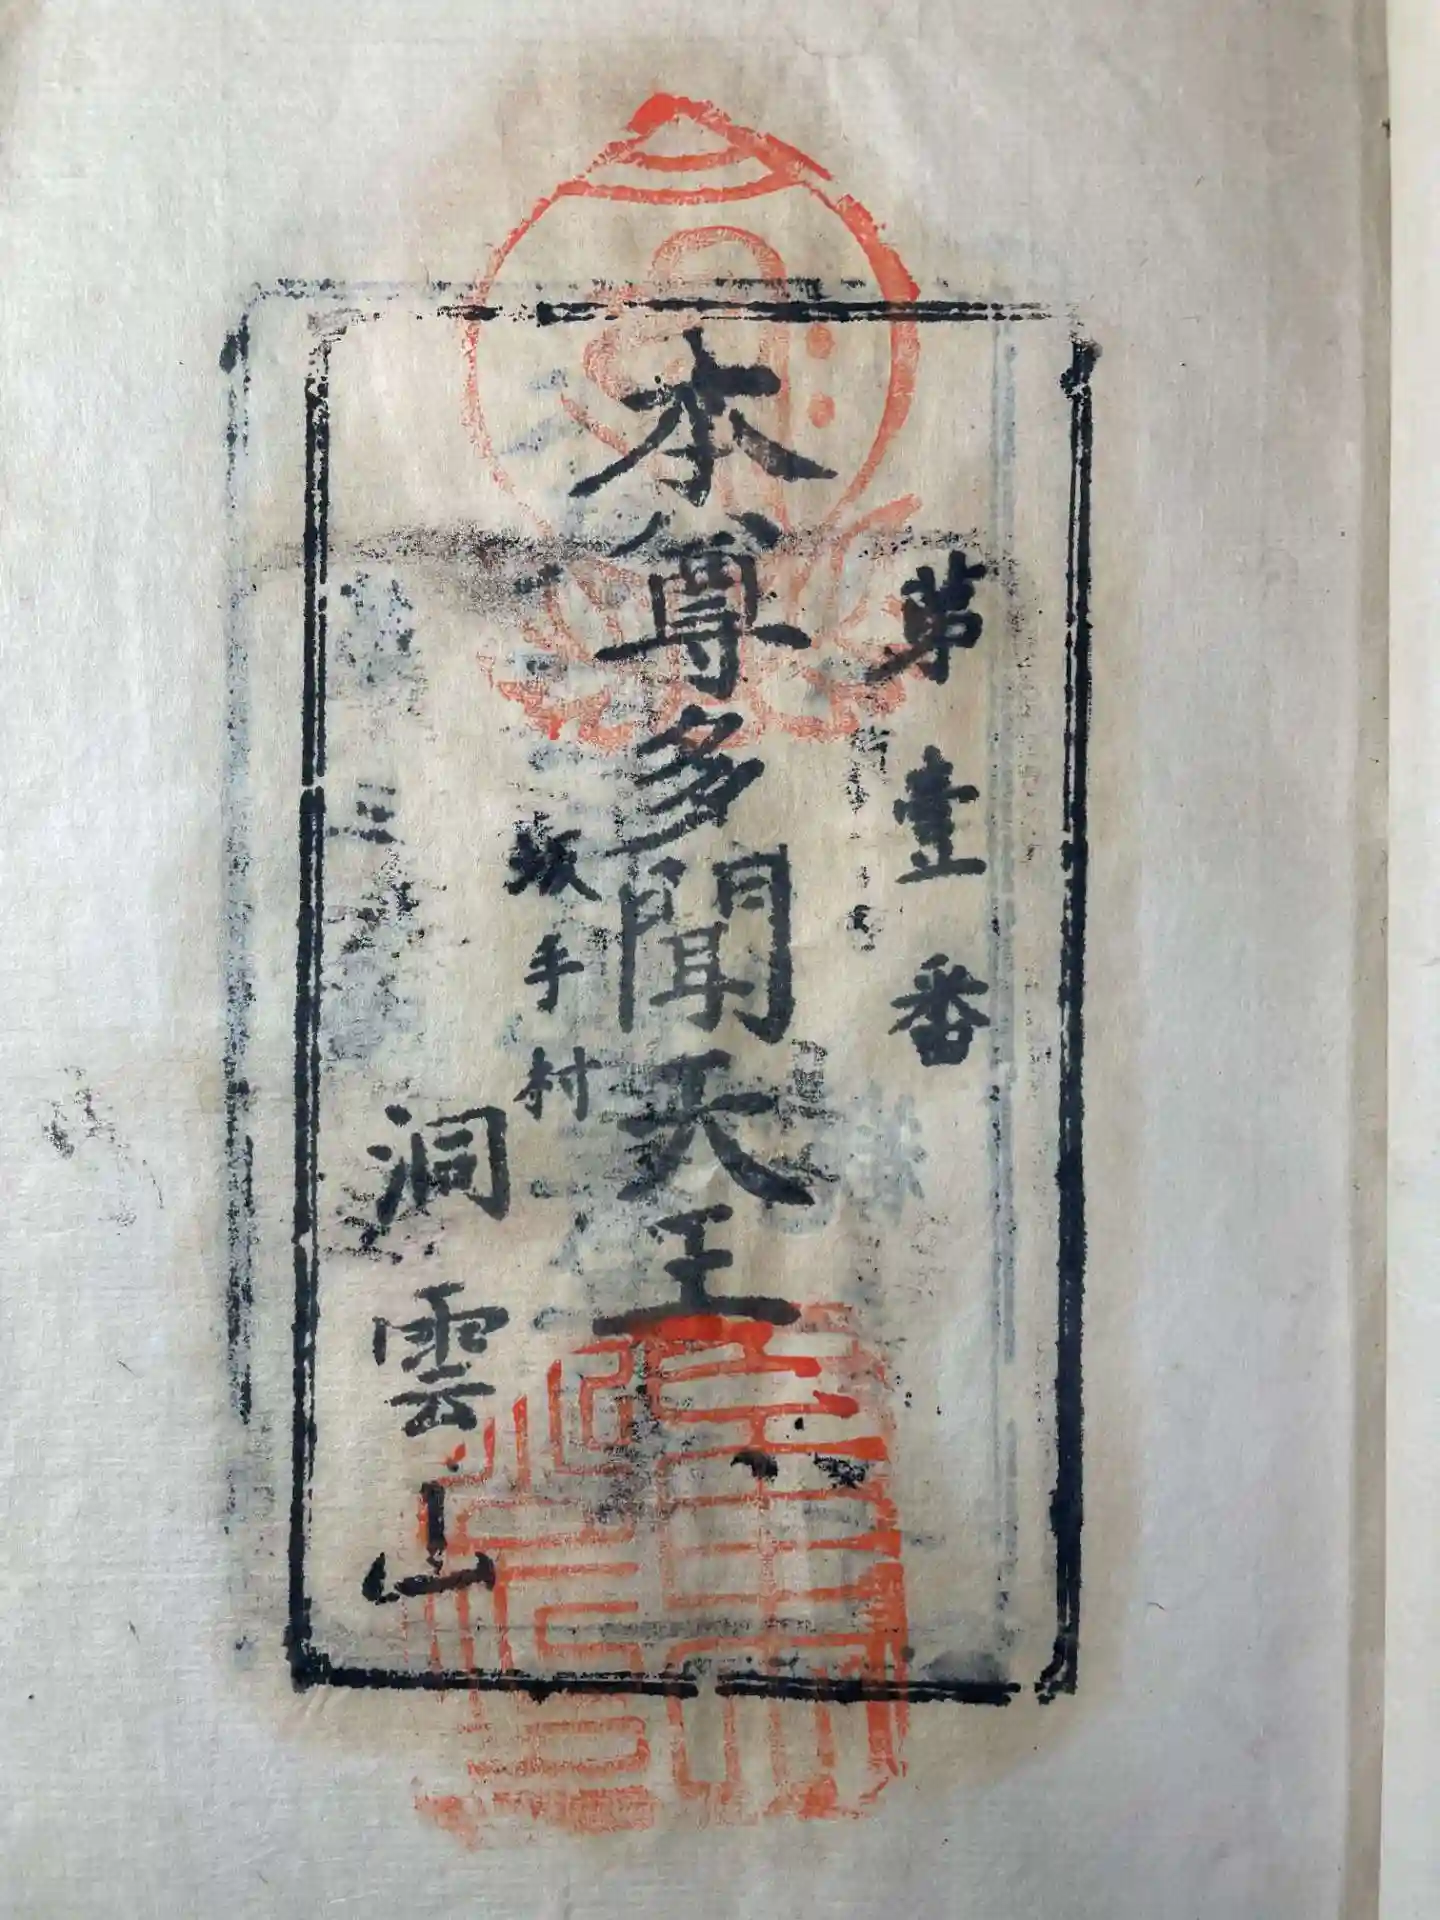 第壹番
本尊多聞天王
坂手村
洞雲山